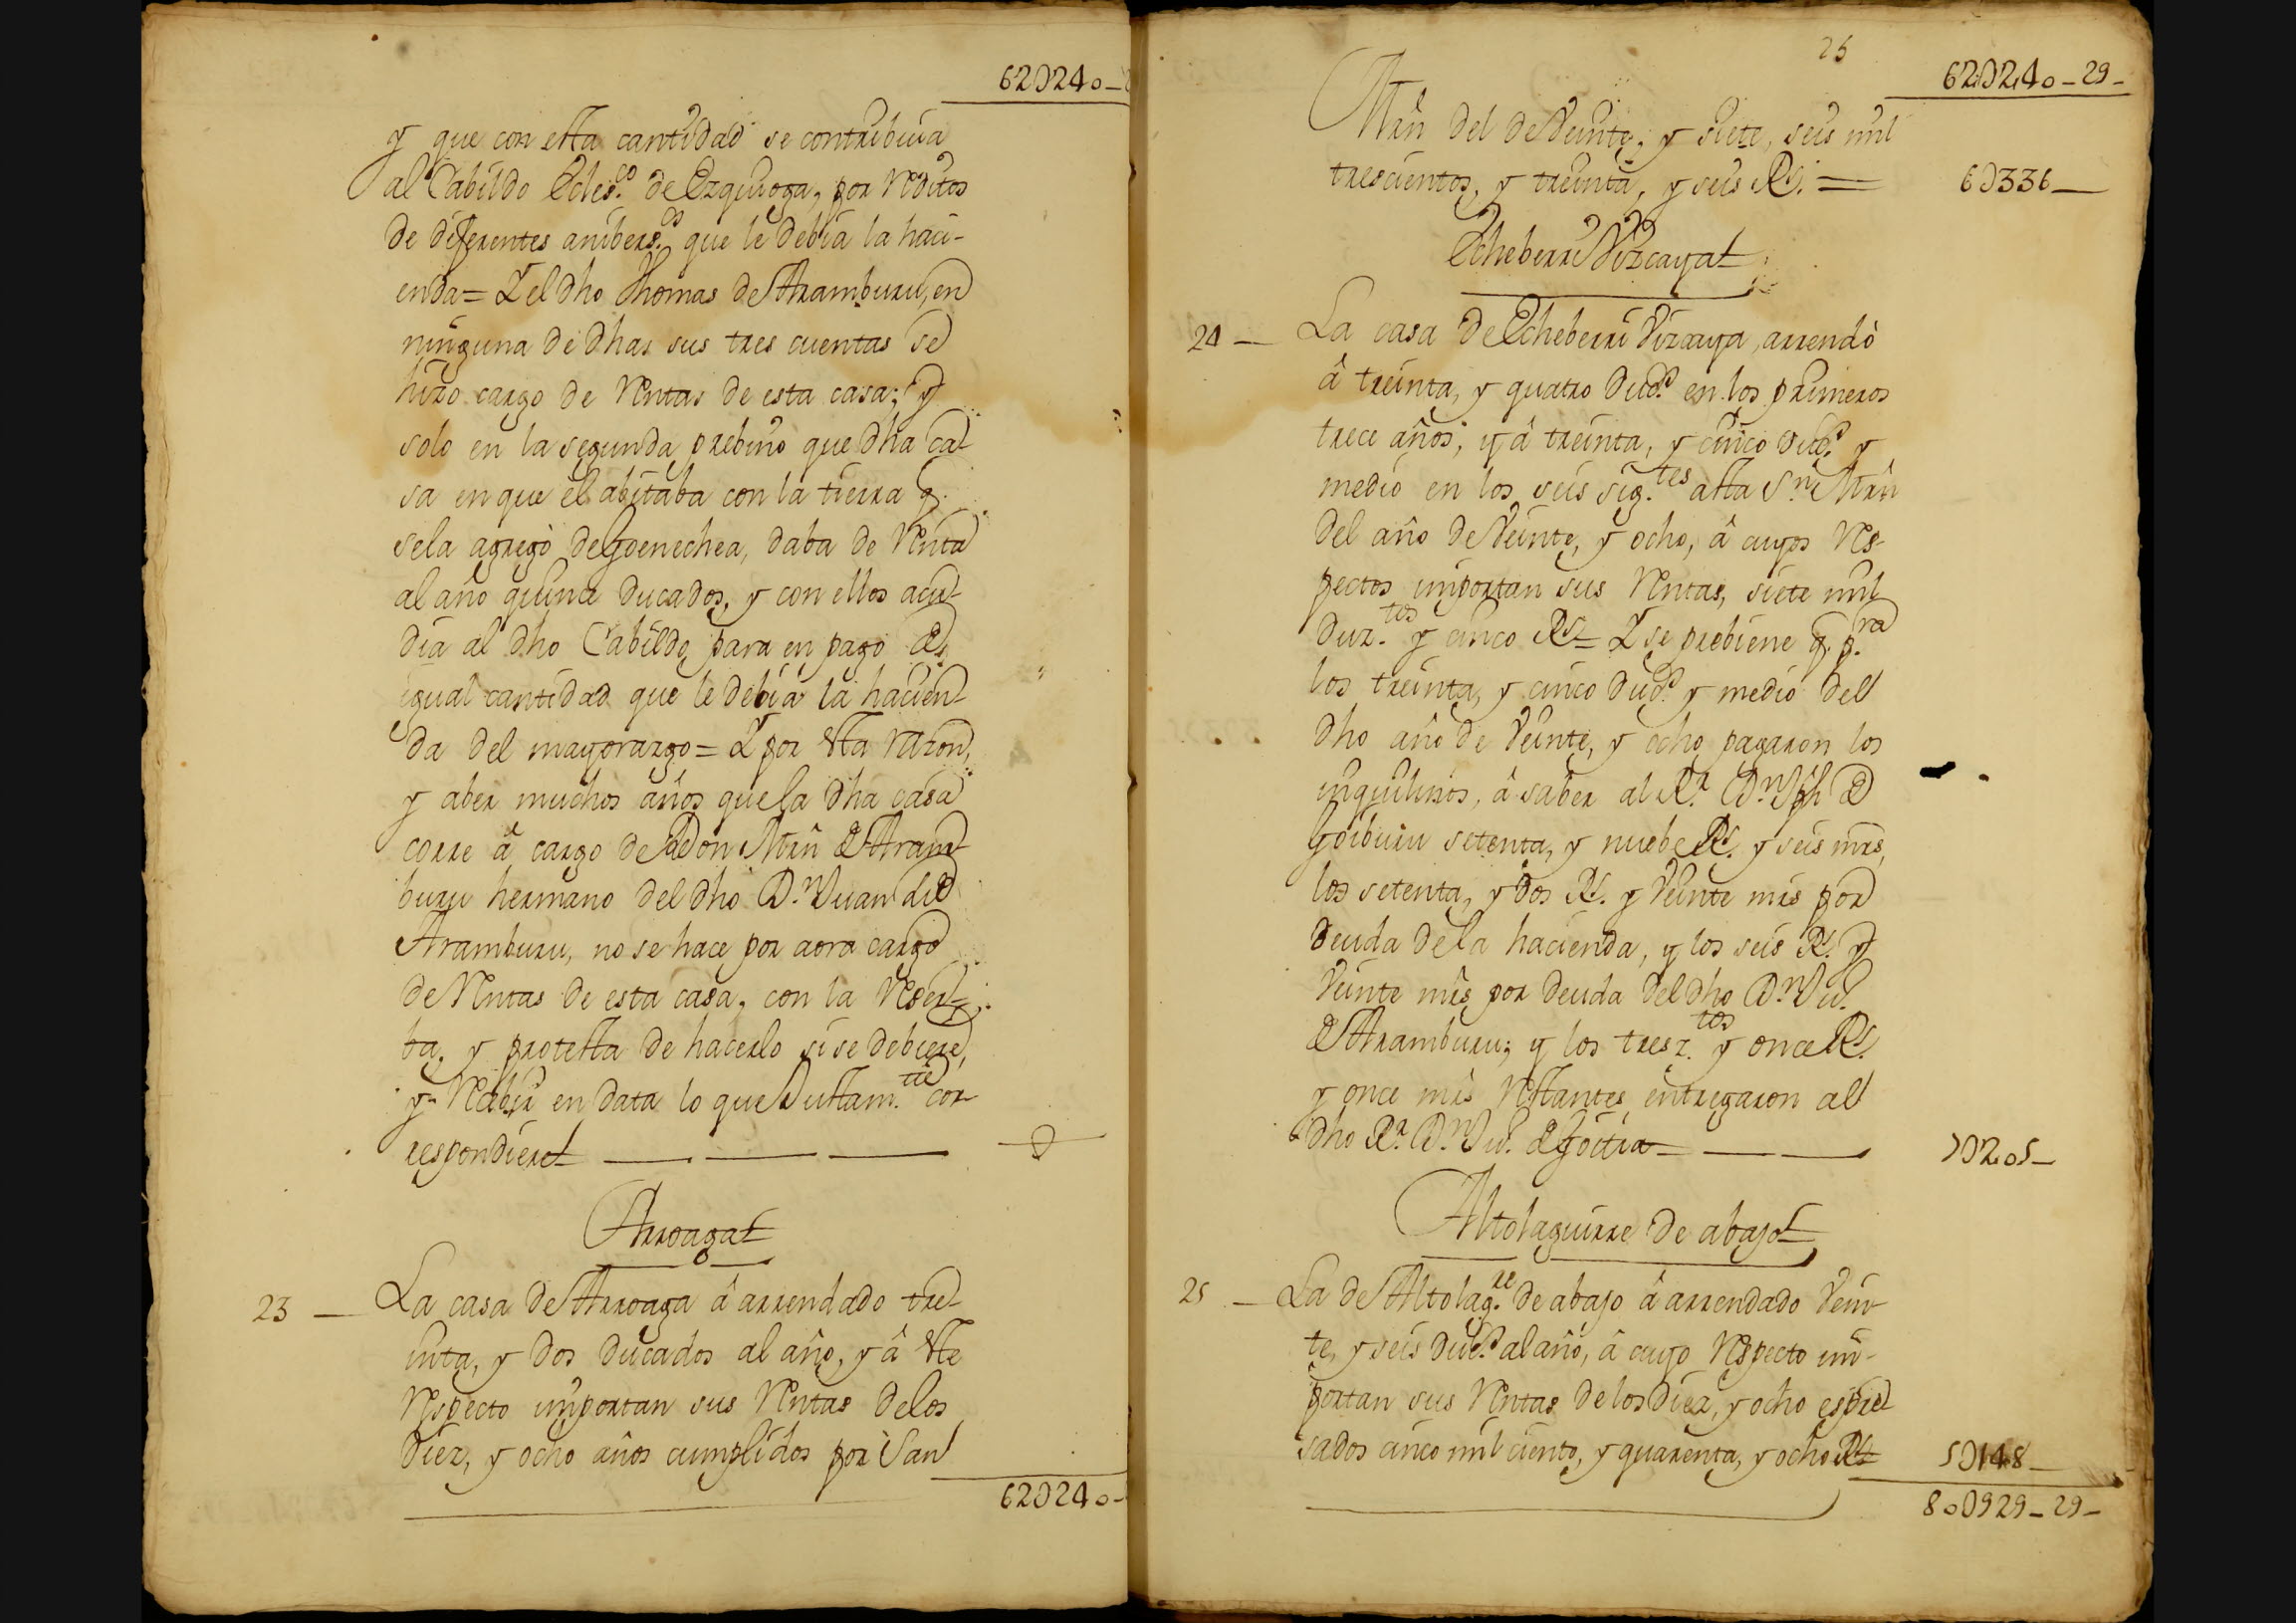 62D240-
y que con esta cantidad se contribuia
al Cabildo Ecles.co de Ezquioga, por Reditos
de diferentes anibers.os que le debia la haci-
enda= Y el dho Thomas de Aramburu, en
ninguna de dhas sus tres cuentas se
hizo cargo de Rentas de esta casa; y
solo en la segunda prebino que dha ca-
sa en que el abitaba con la tierra q.
sela agregò de Goenechea, daba de Renta
al año quince Ducados, y con ellos acu-
dia al dho Cabildo para en pago de
igual cantidad que le debia la hacien-
da del mayorazgo= Y por esta razon,
y aber muchos años que la dha casa
corre â cargo de Don Mrn de Aram-
buru hermano del dho D.n Juan de
Aramburu, no se hace por aora cargo
de Rentas de esta casa, con la Reser-
ba, y protesta de hacerlo si se debiere,
y Recibir en data lo que Justam.te cor-
respondiere
Arroaga
23 — La casa de Arroaga â arrendado tre-
inta, y dos ducados al año, y â este
Respecto importan sus Rentas delos
diez, y ocho años cumplidos por San
62D240-
25
62D240-29-
Mrn del de Veinte, y siete, seis mil
trescientos, y treinta, y seis Rs. = 6D336—
Echeberri Vizcaya
24 — La casa de Echeberri Vizcaya, arrendò
â treinta, y quatro Ducs. en los primeros
trece años, y â treinta, y cinco Ducs. y
medio en los seis sig.tes asta S.n Mrn
del año de Veinte, y ocho, â cuyos Res-
pectos importan sus Rentas, siete mil
Duz.tos y cinco Rs= Y se prebiene q. p.ra
los treinta, y cinco Ducs. y medio del
dho año de Veinte, y ocho pagaron los
inquilinos, â saber al Rr. D.n Jph de
Goiburu setenta, y nuebe Rs. y seis mrs,
los setenta, y dos Rs. y Veinte mrs por
deuda dela hacienda, y los seis Rs. y
Veinte mrs por deuda del dho D.n Ju.
de Aramburu; y los tresz.tos y once Rs.
y once mrs Restantes, entregaron al
dho Rr. D.n Ju. de Goitia 7D205—
Altolaguirre de abajo
25 — La de Altolag.re de abajo â arrendado Vein-
te, y seis Ducs. al año, â cuyo Respecto im-
portan sus Rentas delos diez, y ocho espre-
sados cinco mil ciento, y quarenta, y ocho Rs 5D148—
80D929-29-